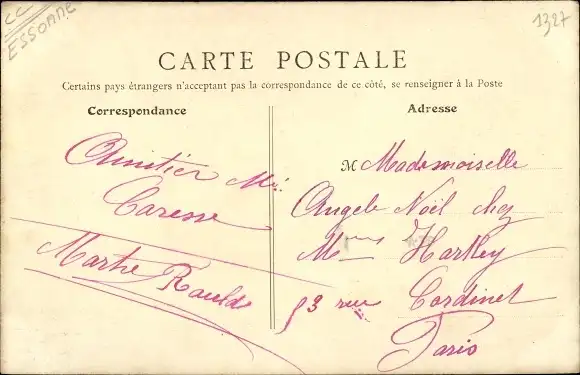 CC
ESSONNE
1327
CARTE POSTALE
Certains pays étrangers n'acceptant pas la correspondance de ce côté, se renseigner à la Poste
Correspondance
Amitiés
Caresse
Marthe
Adresse
M Mademoiselle
Angele Noël chez
Mme Hartley
53 rue Cardinet
Paris